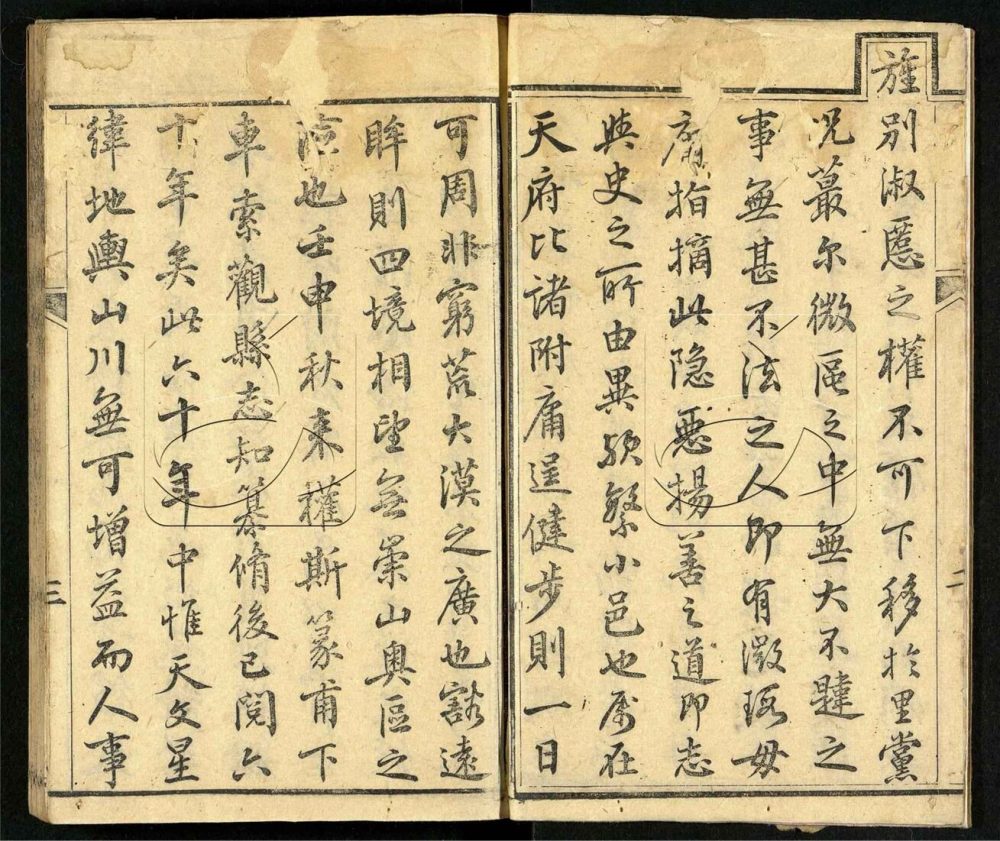 旌別淑慝之權不可下移於里黨
况蕞尔微區之中無大不韙之
事無甚不法之人即有瑕毋
庸指摘此隐惡揚善之道即志
與史之所由異欤繁小邑也属在
天府比諸附庸逞健步則一日
可周非窮荒大漠之廣也豁遠
眸則四境相望無崇山奥區之
險也壬申秋来權斯篆甫下
車索觀縣志知纂脩後已閲六
十年矣此六十年中惟天文星
緯地輿山川無可增益而人事
二
三